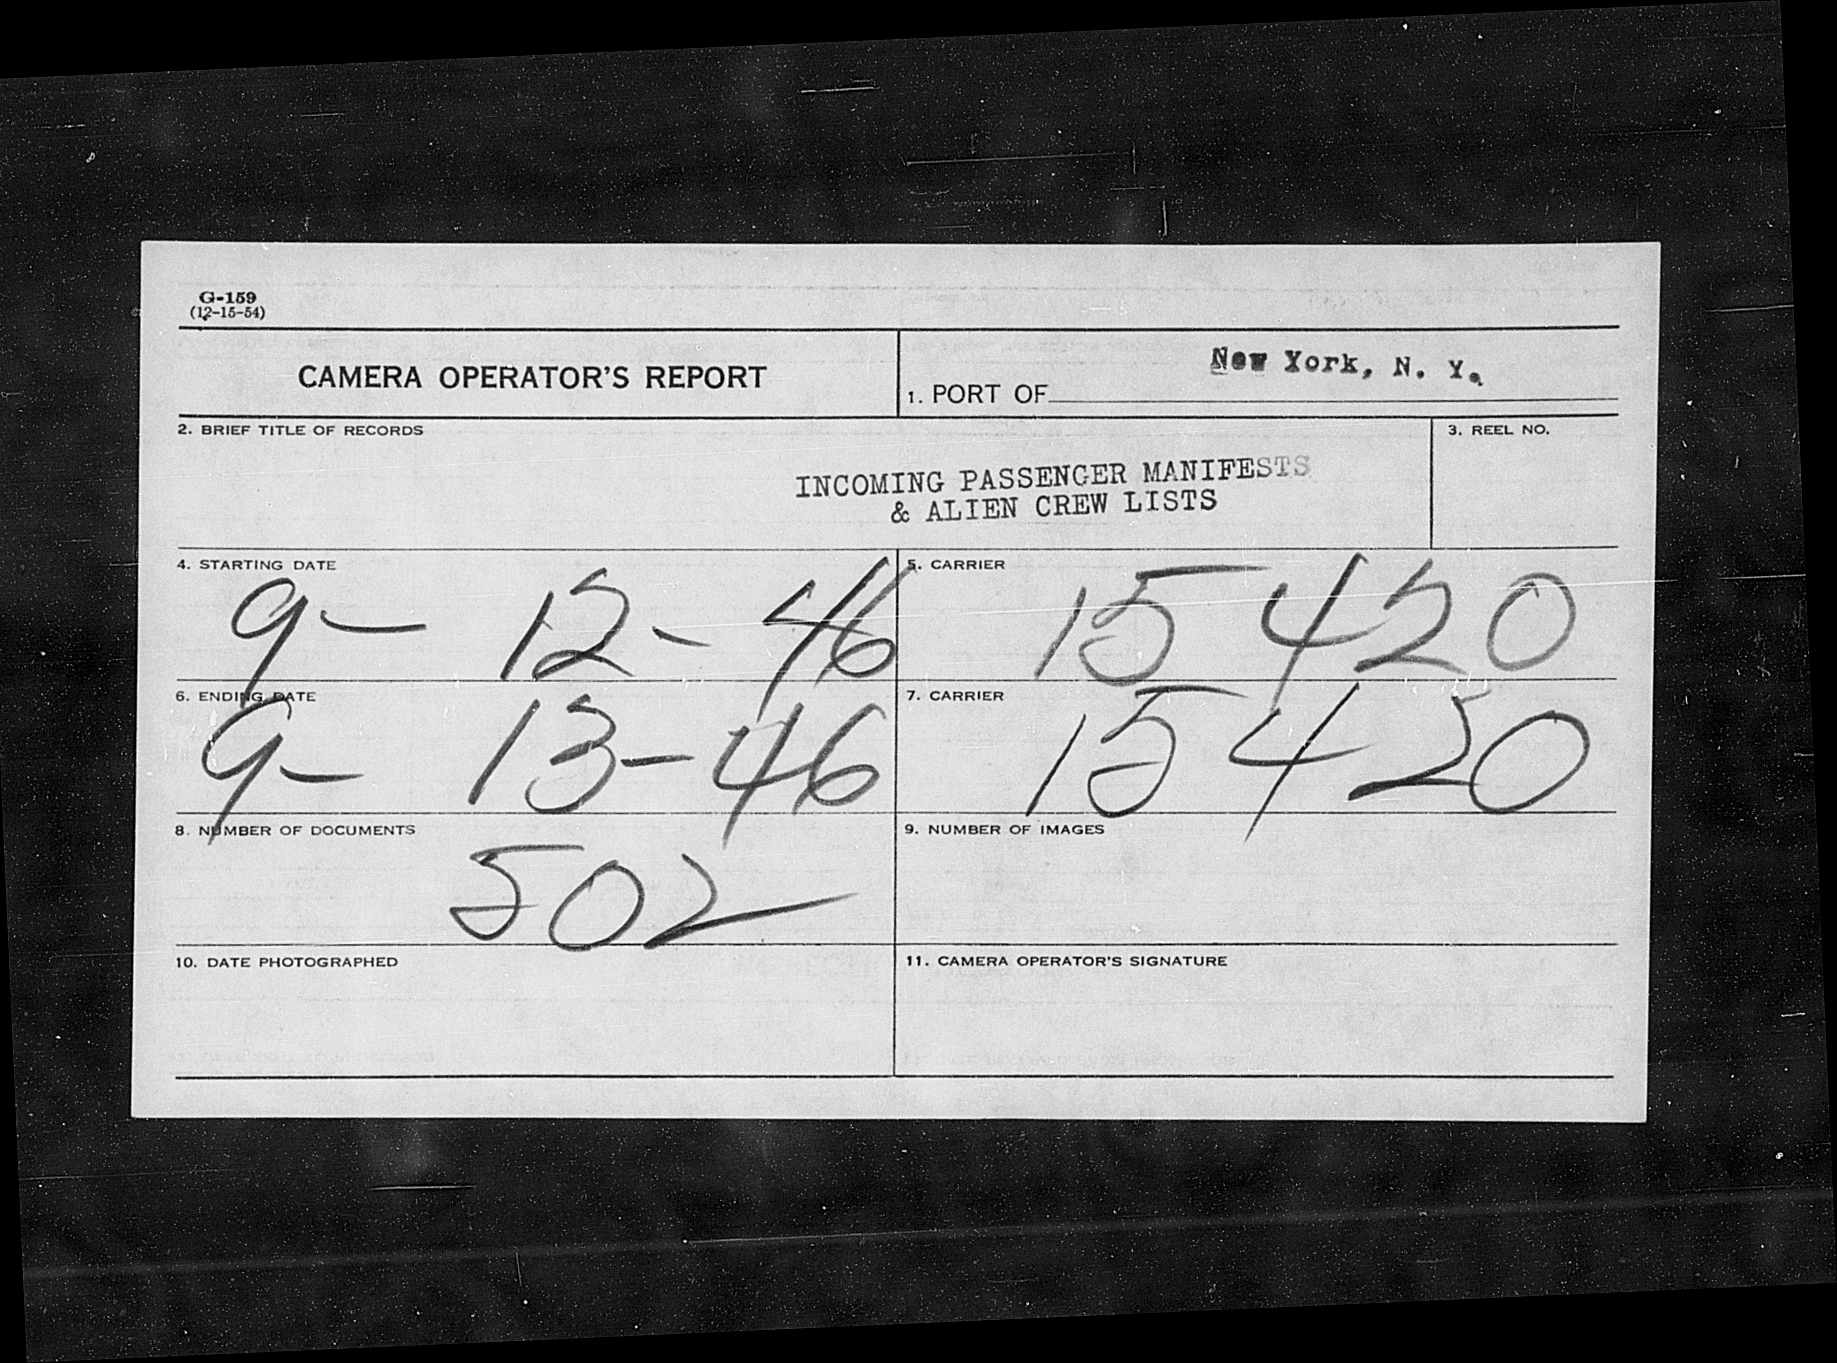 G-159
(12-15-54)
CAMERA OPERATOR'S REPORT
1. PORT OF New York, N. Y.
2. BRIEF TITLE OF RECORDS
INCOMING PASSENGER MANIFESTS
& ALIEN CREW LISTS
3. REEL NO.
4. STARTING DATE
9- 12-46
5. CARRIER
15420
6. ENDING DATE
9- 13-46
7. CARRIER
15420
8. NUMBER OF DOCUMENTS
502
9. NUMBER OF IMAGES
10. DATE PHOTOGRAPHED
11. CAMERA OPERATOR'S SIGNATURE